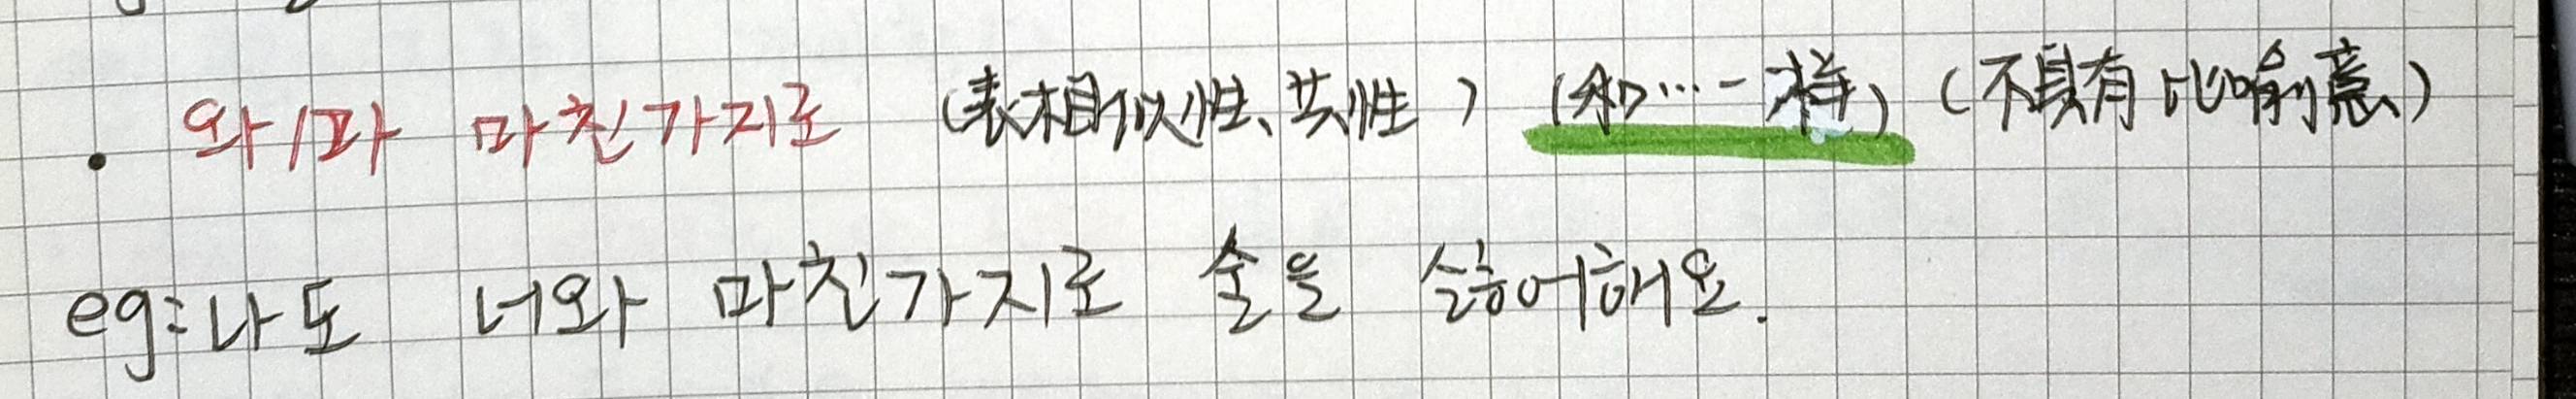 · 와/과 마찬가지로 (表相似性、共性) (和…一样) (不具有比喻意)
eg:나도 너와 마찬가지로 술을 싫어해요.